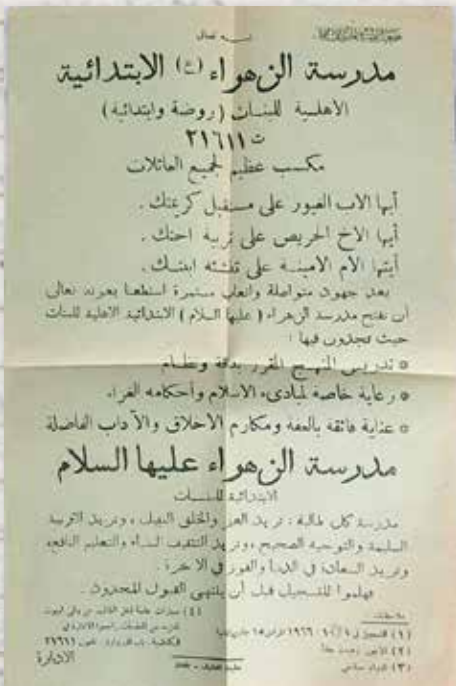 بسمه تعالى
مدرسة الزهراء (ع) الابتدائية
الاهلية للبنات (روضة وابتدائية)
ت ٢١٦١١
مكسب عظيم لجميع العائلات
أيها الاب الغيور على مستقبل كريمتك .
أيها الاخ الحريص على تربية اختك .
أيتها الام الامينة على تنشئة ابنتك .
بعد جهود متواصلة واتعاب مستمرة استطعنا بعونه تعالى
أن نفتح مدرسة الزهراء ( عليها السلام ) الابتدائية الاهلية للبنات
حيث تجدون فيها :
* تدريس المنهج المقرر بدقة ونظام
* رعاية خاصة لمبادىء الاسلام وأحكامه الغراء
* عناية فائقة بالعفة ومكارم الاخلاق والآداب الفاضلة
مدرسة الزهراء عليها السلام
الابتدائية للبنات
مدرسة كل طالبة : تريد العز والخلق النبيل ، وتريد التربية
السليمة والتوجيه الصحيح ، وتريد التثقيف البناء والتعليم النافع،
وتريد السعادة في الدنيا والفوز في الاخرة :
فهلموا للتسجيل قبل أن ينتهي القبول المحدود .
ملاحظات :
(١) التسجيل في ١٩٦٦
(٢) الاجور زهيدة جداً
(٣) الدوام صباحي
(٤) سيارات
الادارة